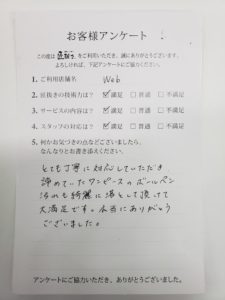 お客様アンケート
この度は 直ぷう をご利用いただき、誠にありがとうございます。
よろしければ、下記アンケートにご協力ください。
1. ご利用店舗名 Web
2. 直抜きの技術力は? ☑満足 □普通 □不満足
3. サービスの内容は? ☑満足 □普通 □不満足
4. スタッフの対応は? ☑満足 □普通 □不満足
5. 何かお気づきの点などございましたら、
なんなりとお書き添えください。
とても丁寧に対応していただき
諦めていたワンピースのボールペン
汚れも綺麗に落として頂けて
大満足です。本当にありがとう
ございました。
アンケートにご協力いただき、ありがとうございました。